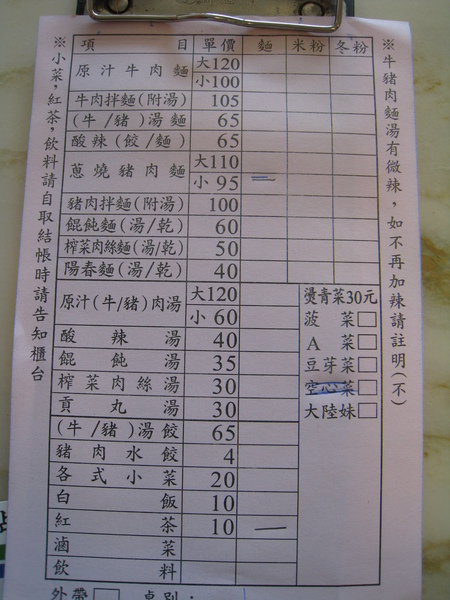 項目 單價 麵 米粉 冬粉
原汁牛肉麵 大120
小100
牛肉拌麵(附湯) 105
(牛/豬)湯麵 65
酸辣(餃/麵) 65
蔥燒豬肉麵 大110
小 95
豬肉拌麵(附湯) 100
餛飩麵(湯/乾) 60
榨菜肉絲麵(湯/乾) 50
陽春麵(湯/乾) 40
原汁(牛/豬)肉湯 大120
小 60
酸辣湯 40
餛飩湯 35
榨菜肉絲湯 30
貢丸湯 30
(牛/豬)湯餃 65
豬肉水餃 4
各式小菜 20
白飯 10
紅茶 10
滷菜
飲料
燙青菜30元
菠菜□
A菜□
豆芽菜□
空心菜□
大陸妹□
外帶□ 桌別:
※小菜,紅茶,飲料請自取結帳時請告知櫃台
※牛豬肉麵湯有微辣,如不再加辣請註明(不)